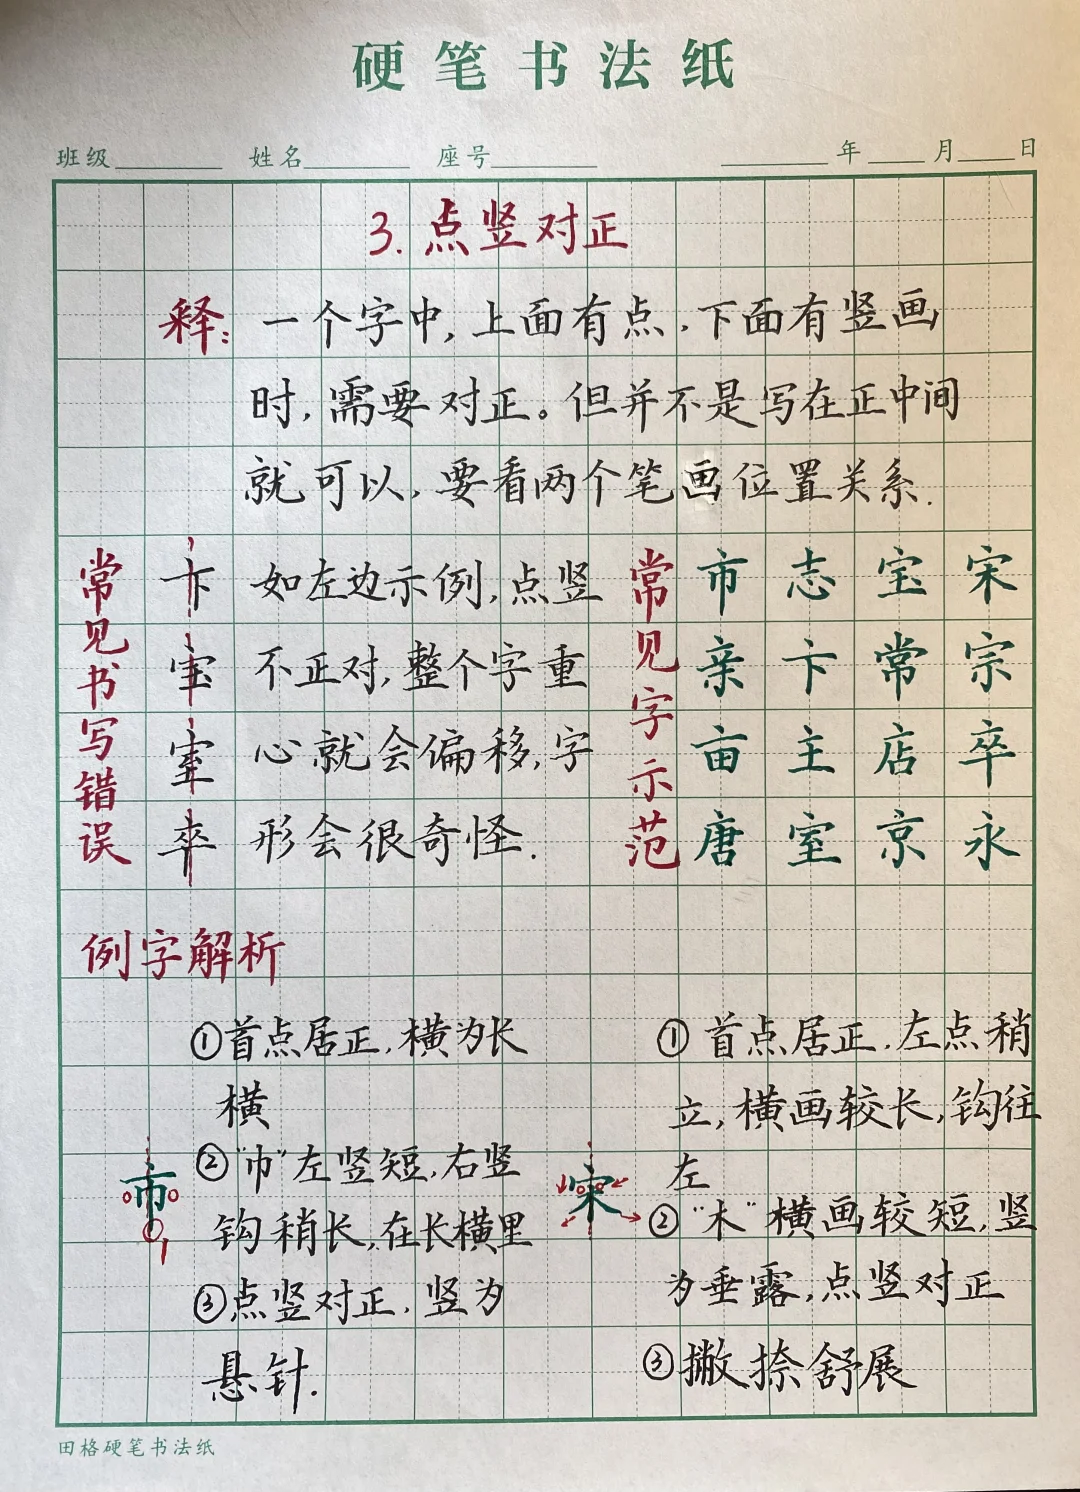 硬笔书法纸
班级 姓名 座号 年 月 日
3. 点竖对正
释：一个字中，上面有点，下面有竖画
时，需要对正。但并不是写在正中间
就可以，要看两个笔画位置关系.
常见书写错误
卞
宝
室
卒
如左边示例，点竖
不正对，整个字重
心就会偏移，字
形会很奇怪.
常见字示范
市 志 宝 宋
亲 卞 常 宗
亩 主 店 卒
唐 室 京 永
例字解析
市
①首点居正，横为长
横
②“巾”左竖短，右竖
钩稍长，在长横里
③点竖对正，竖为
悬针.
宋
①首点居正，左点稍
立，横画较长，钩往
左
②“木”横画较短，竖
为垂露，点竖对正
③撇捺舒展
田格硬笔书法纸